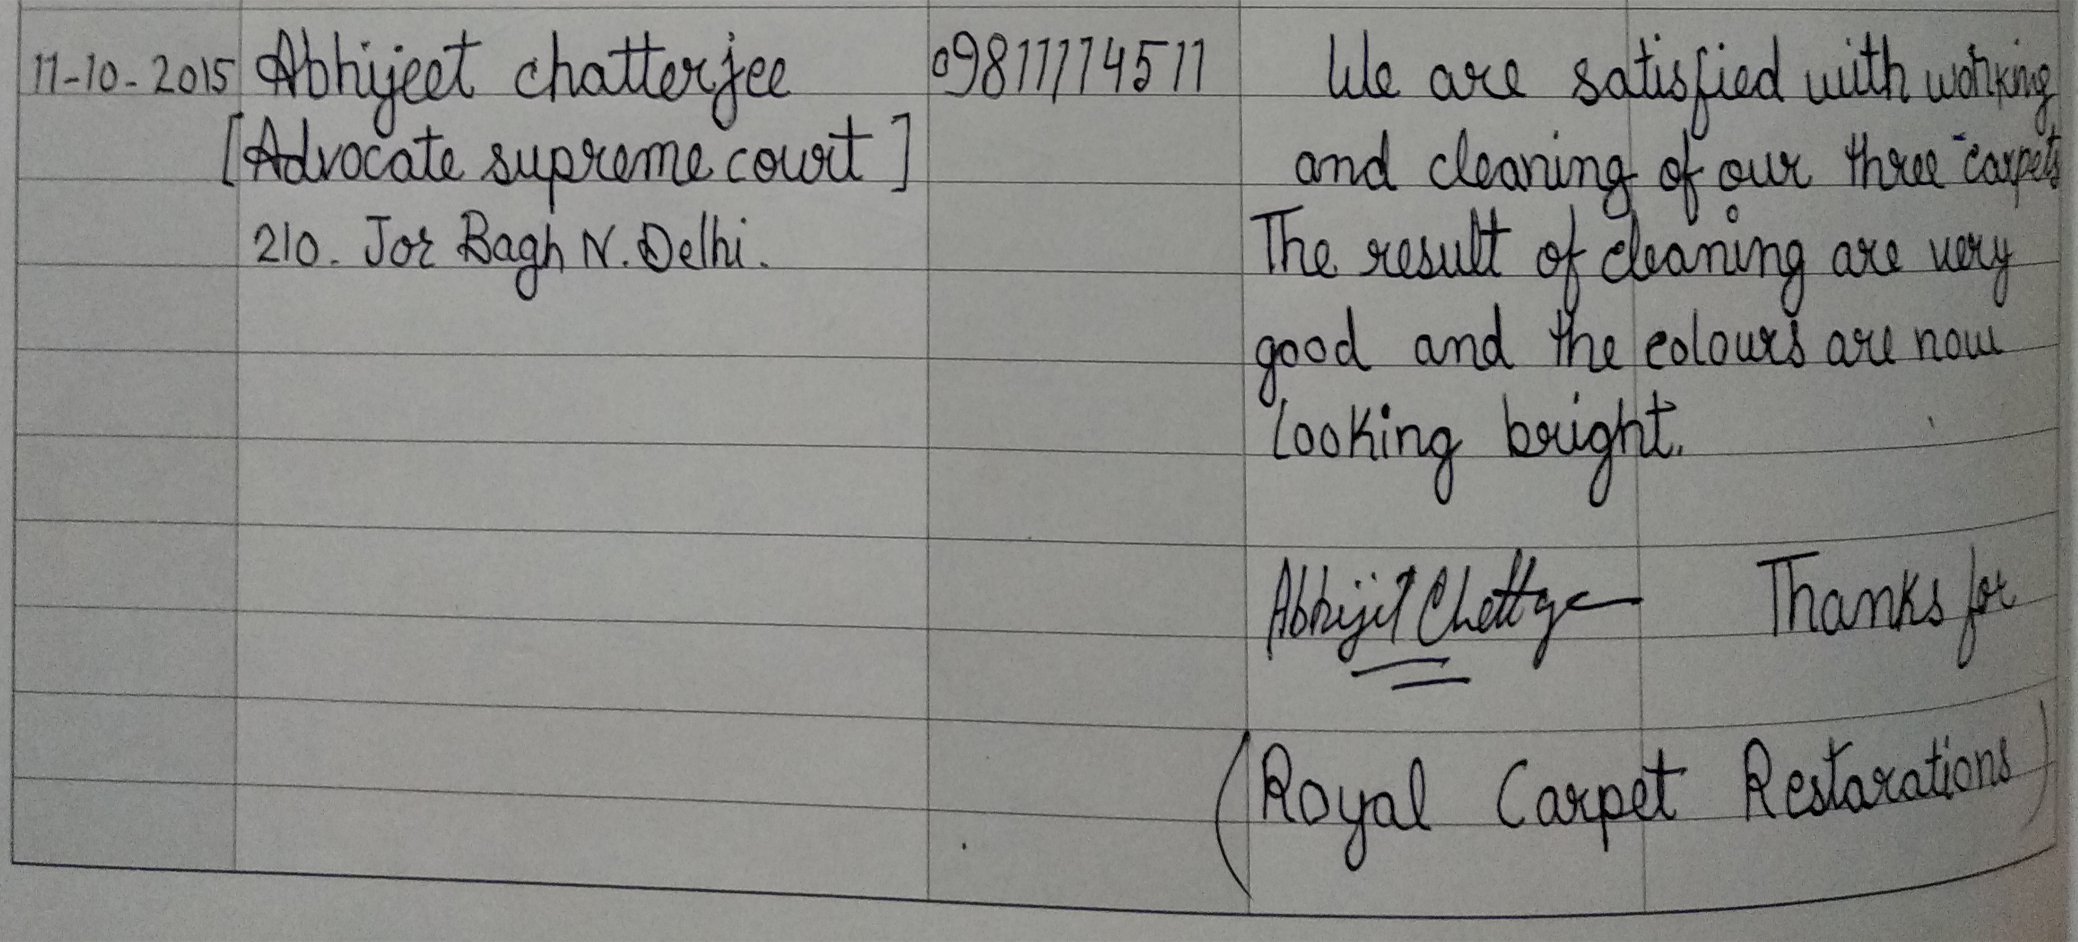 11-10-2015 Abhijeet chatterjee 09811114511 We are satisfied with working
[Advocate supreme court] and cleaning of our three carpets
210. Jor Bagh N. Delhi. The result of cleaning are very
good and the colours are now
looking bright.
Abhijit Chatterjee Thanks for
(Royal Carpet Restarations)